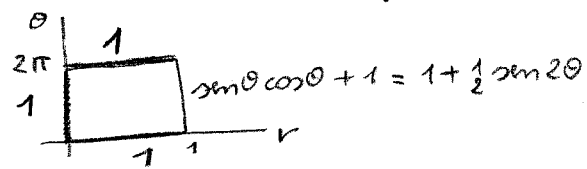 θ
1
2π
senθcosθ + 1 = 1 + ½ sen2θ
1
1 1 r